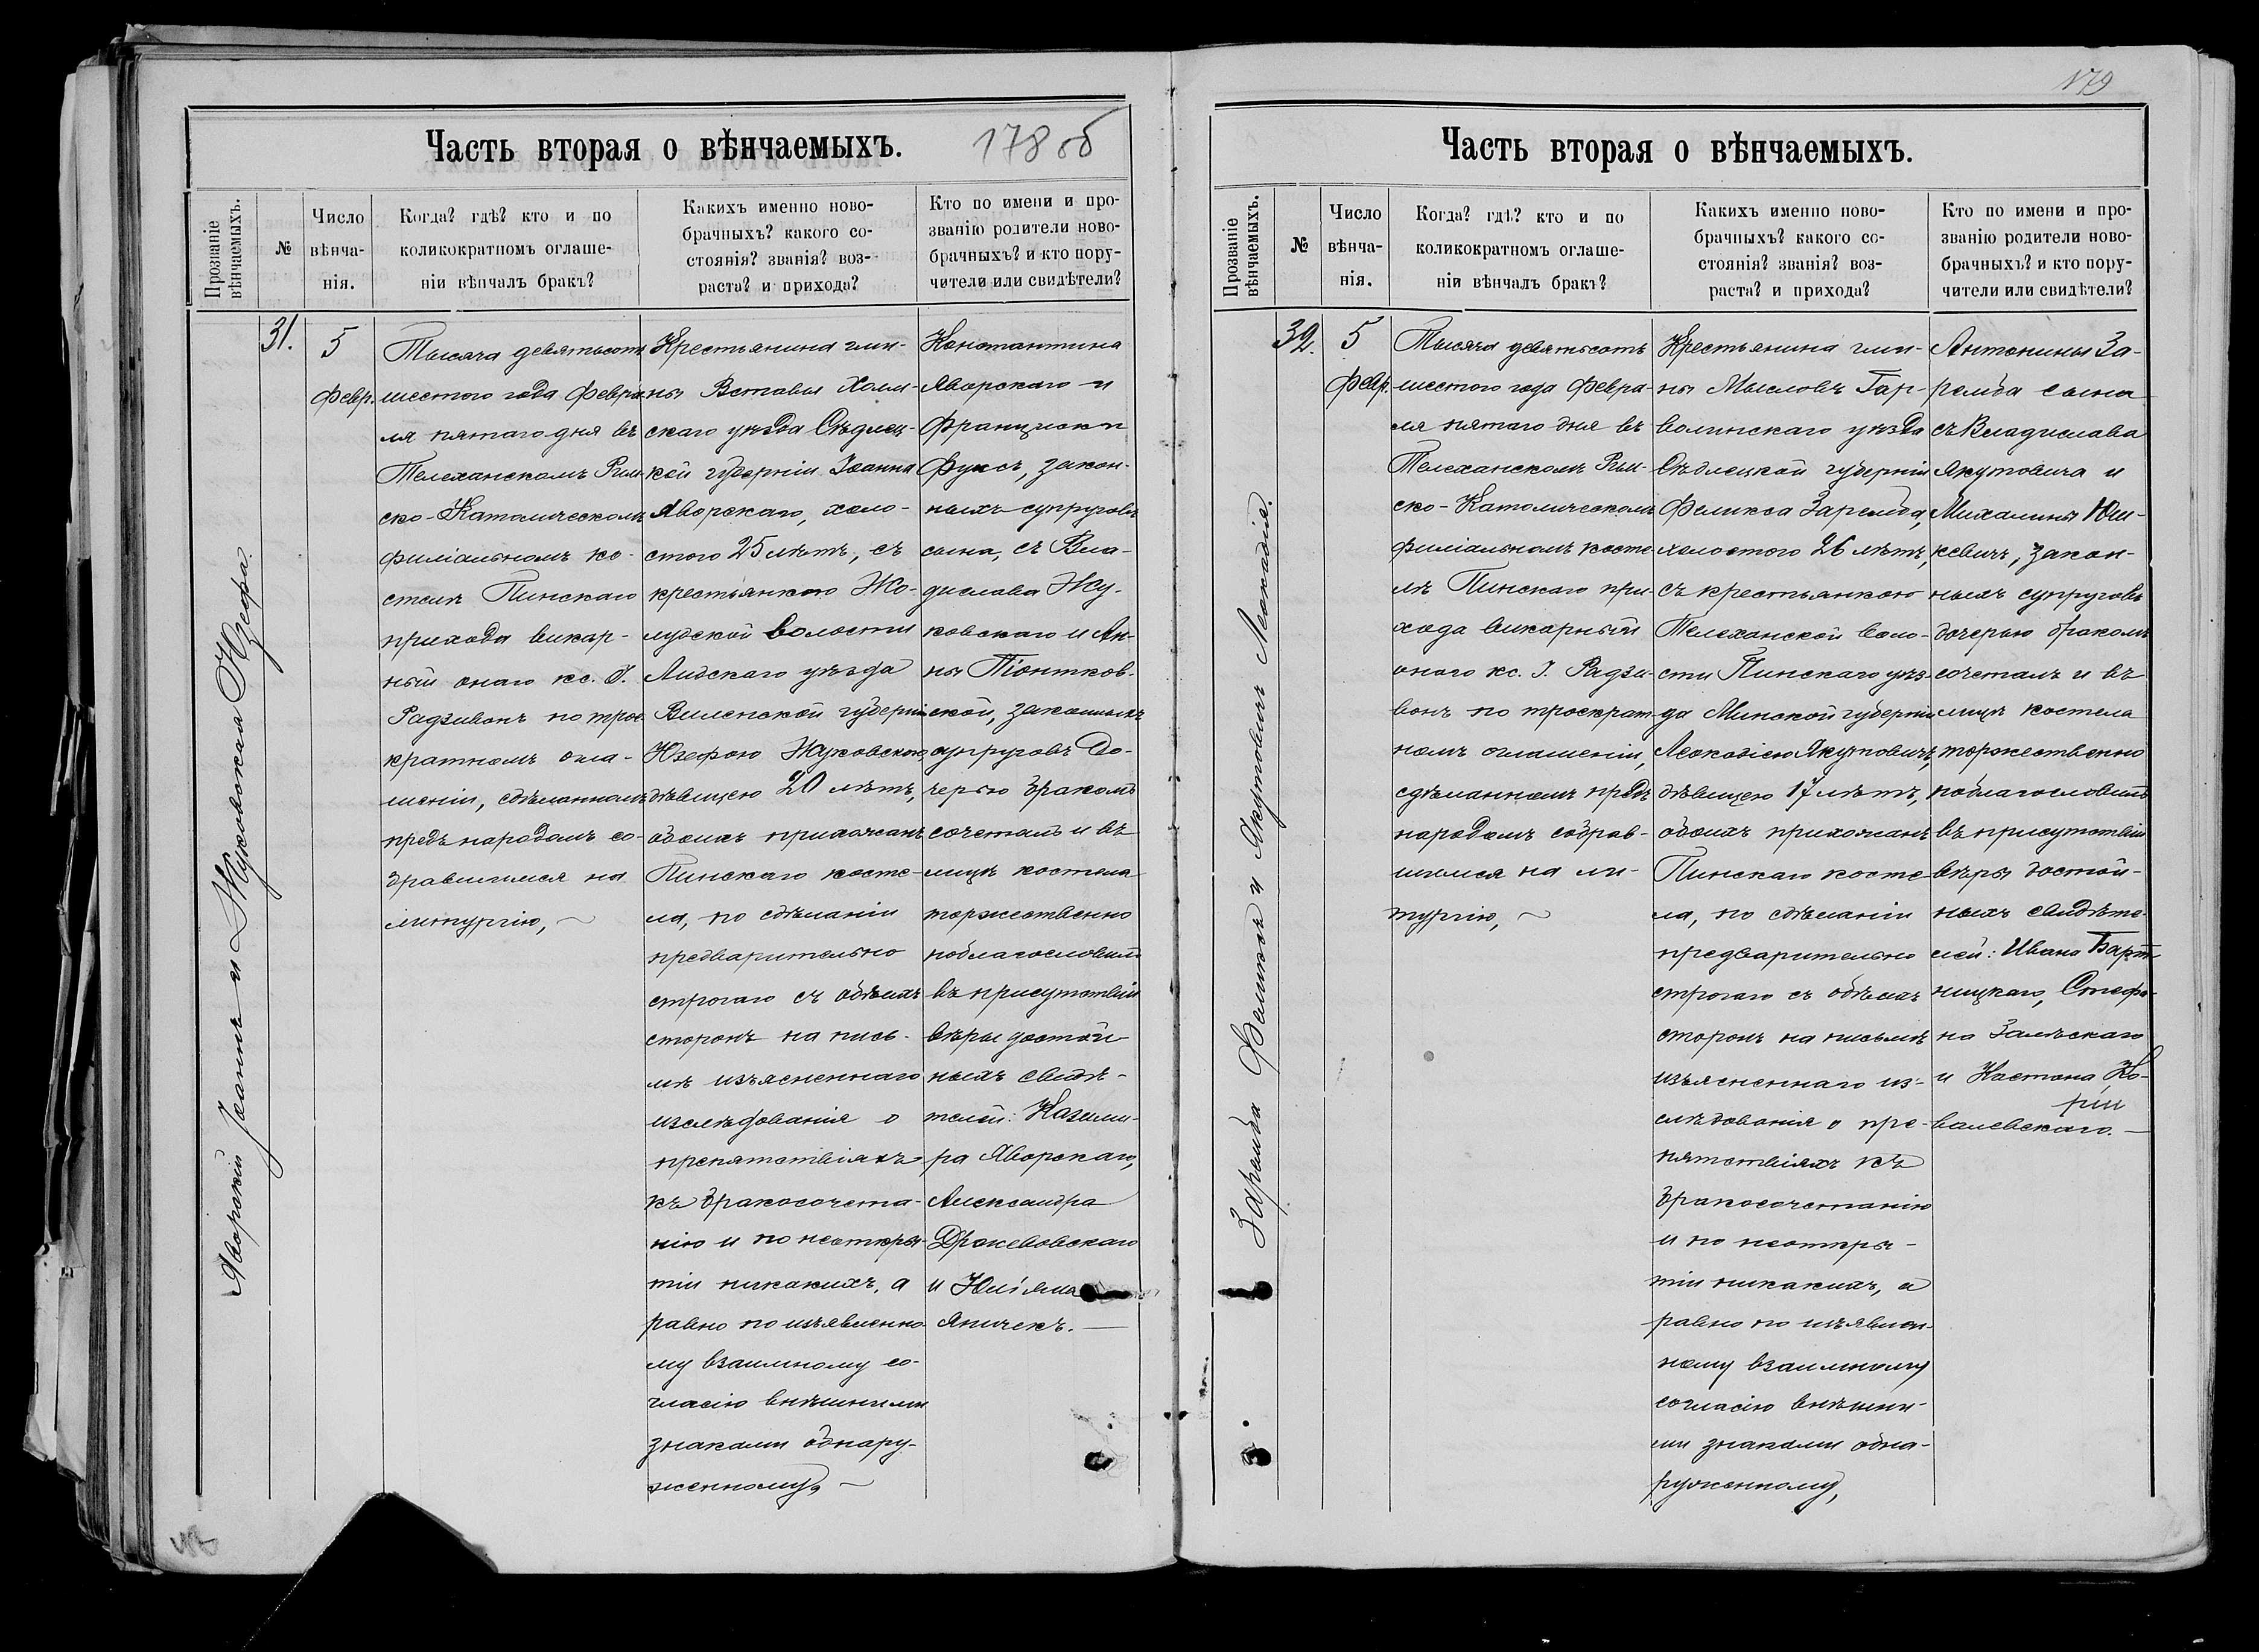 Часть вторая о вѣнчаемыхъ.
178 об
Прозваніе вѣнчаемыхъ.
№
Число вѣнча-
нія.
Когда? гдѣ? кто и по
коликократномъ оглаше-
ніи вѣнчалъ бракъ?
Какихъ именно ново-
брачныхъ? какого со-
стоянія? званія? воз-
раста? и прихода?
Кто по имени и про-
званію родители ново-
брачныхъ? и кто пору-
чители или свидѣтели?
Яворскій Іоаннъ и Жуковская Юзефа.
31.
5
Февр.
Тысяча девятьсотъ
шестого года Февра-
ля пятаго дня въ
Телеханскомъ Рим-
ско-Католическомъ
филіальномъ ко-
стелѣ Пинскаго
прихода викар-
ный онаго кс. І.
Радзивонъ по трое-
кратномъ огла-
шеніи, сдѣланномъ
предъ народомъ со-
бравшимся на
литургію,
Крестьянина гми-
ны Вставы Холм-
скаго уѣзда Сѣдлец-
кой губерніи Іоанна
Яворскаго, холо-
стого 25 лѣтъ, съ
крестьянкою Жо-
лудской волости
Лидскаго уѣзда
Виленской губерніи
Юзефою Жуковскою,
дѣвицею 20 лѣтъ,
обоихъ прихожанъ
Пинскаго косте-
ла, по сдѣланіи
предварительно
строгаго съ обѣихъ
сторонъ на пись-
мѣ изъясненнаго
изслѣдованія о
препятствіяхъ
къ бракосочета-
нію и по неоткры-
тіи никакихъ, а
равно по изъявленно-
му взаимному со-
гласію внѣшними
знаками обнару-
женному,
Константина
Яворскаго и
Франциски
Фуксъ, закон-
ныхъ супруговъ
сына, съ Вла-
дислава Жу-
ковскаго и Ан-
ны Піонтков-
ской, законныхъ
супруговъ до-
черью бракомъ
сочеталъ и въ
лицѣ костела
торжественно
поблагословилъ
въ присутствіи
вѣры достой-
ныхъ свидѣ-
телей: Казими-
ра Яворскаго,
Александра
и Юліяна
Яничекъ.
179
Часть вторая о вѣнчаемыхъ.
Прозваніе вѣнчаемыхъ.
№
Число вѣнча-
нія.
Когда? гдѣ? кто и по
коликократномъ оглаше-
ніи вѣнчалъ бракъ?
Какихъ именно ново-
брачныхъ? какого со-
стоянія? званія? воз-
раста? и прихода?
Кто по имени и про-
званію родители ново-
брачныхъ? и кто пору-
чители или свидѣтели?
Заремба Феликсъ и Якутовичъ Леокадія.
32.
5
Февр.
Тысяча девятьсотъ
шестого года Февра-
ля пятаго дня въ
Телеханскомъ Рим-
ско-Католическомъ
филіальномъ косте-
лѣ Пинскаго при-
хода викарный
онаго кс. І. Радзи-
вонъ по троекрат-
номъ оглашеніи,
сдѣланномъ предъ
народомъ собрав-
шимся на ли-
тургію,
Крестьянина гми-
ны Мысловъ Гар-
волинскаго уѣзда
Сѣдлецкой губерніи
Феликса Заремба,
холостого 26 лѣтъ,
съ крестьянкою
Телеханской воло-
сти Пинскаго уѣз-
да Минской губерніи
Леокадіею Якутовичъ,
дѣвицею 17 лѣтъ,
обоихъ прихожанъ
Пинскаго косте-
ла, по сдѣланіи
предварительно
строгаго съ обѣихъ
сторонъ на письмѣ
изъясненнаго из-
слѣдованія о пре-
пятствіяхъ къ
бракосочетанію
и по неоткры-
тіи никакихъ, а
равно по изъявлен-
ному взаимному
согласію внѣшни-
ми знаками обна-
руженному,
Антонины За-
ремба сына
съ Владислава
Якутовича и
Михалины Юш-
кевичъ, закон-
ныхъ супруговъ
дочерью бракомъ
сочеталъ и въ
лицѣ костела
торжественно
поблагословилъ
въ присутствіи
вѣры достой-
ныхъ свидѣте-
лей: Ивана Барт-
ницкаго, Стефа-
на Залѣскаго
и Каетана Ко-
валевскаго.